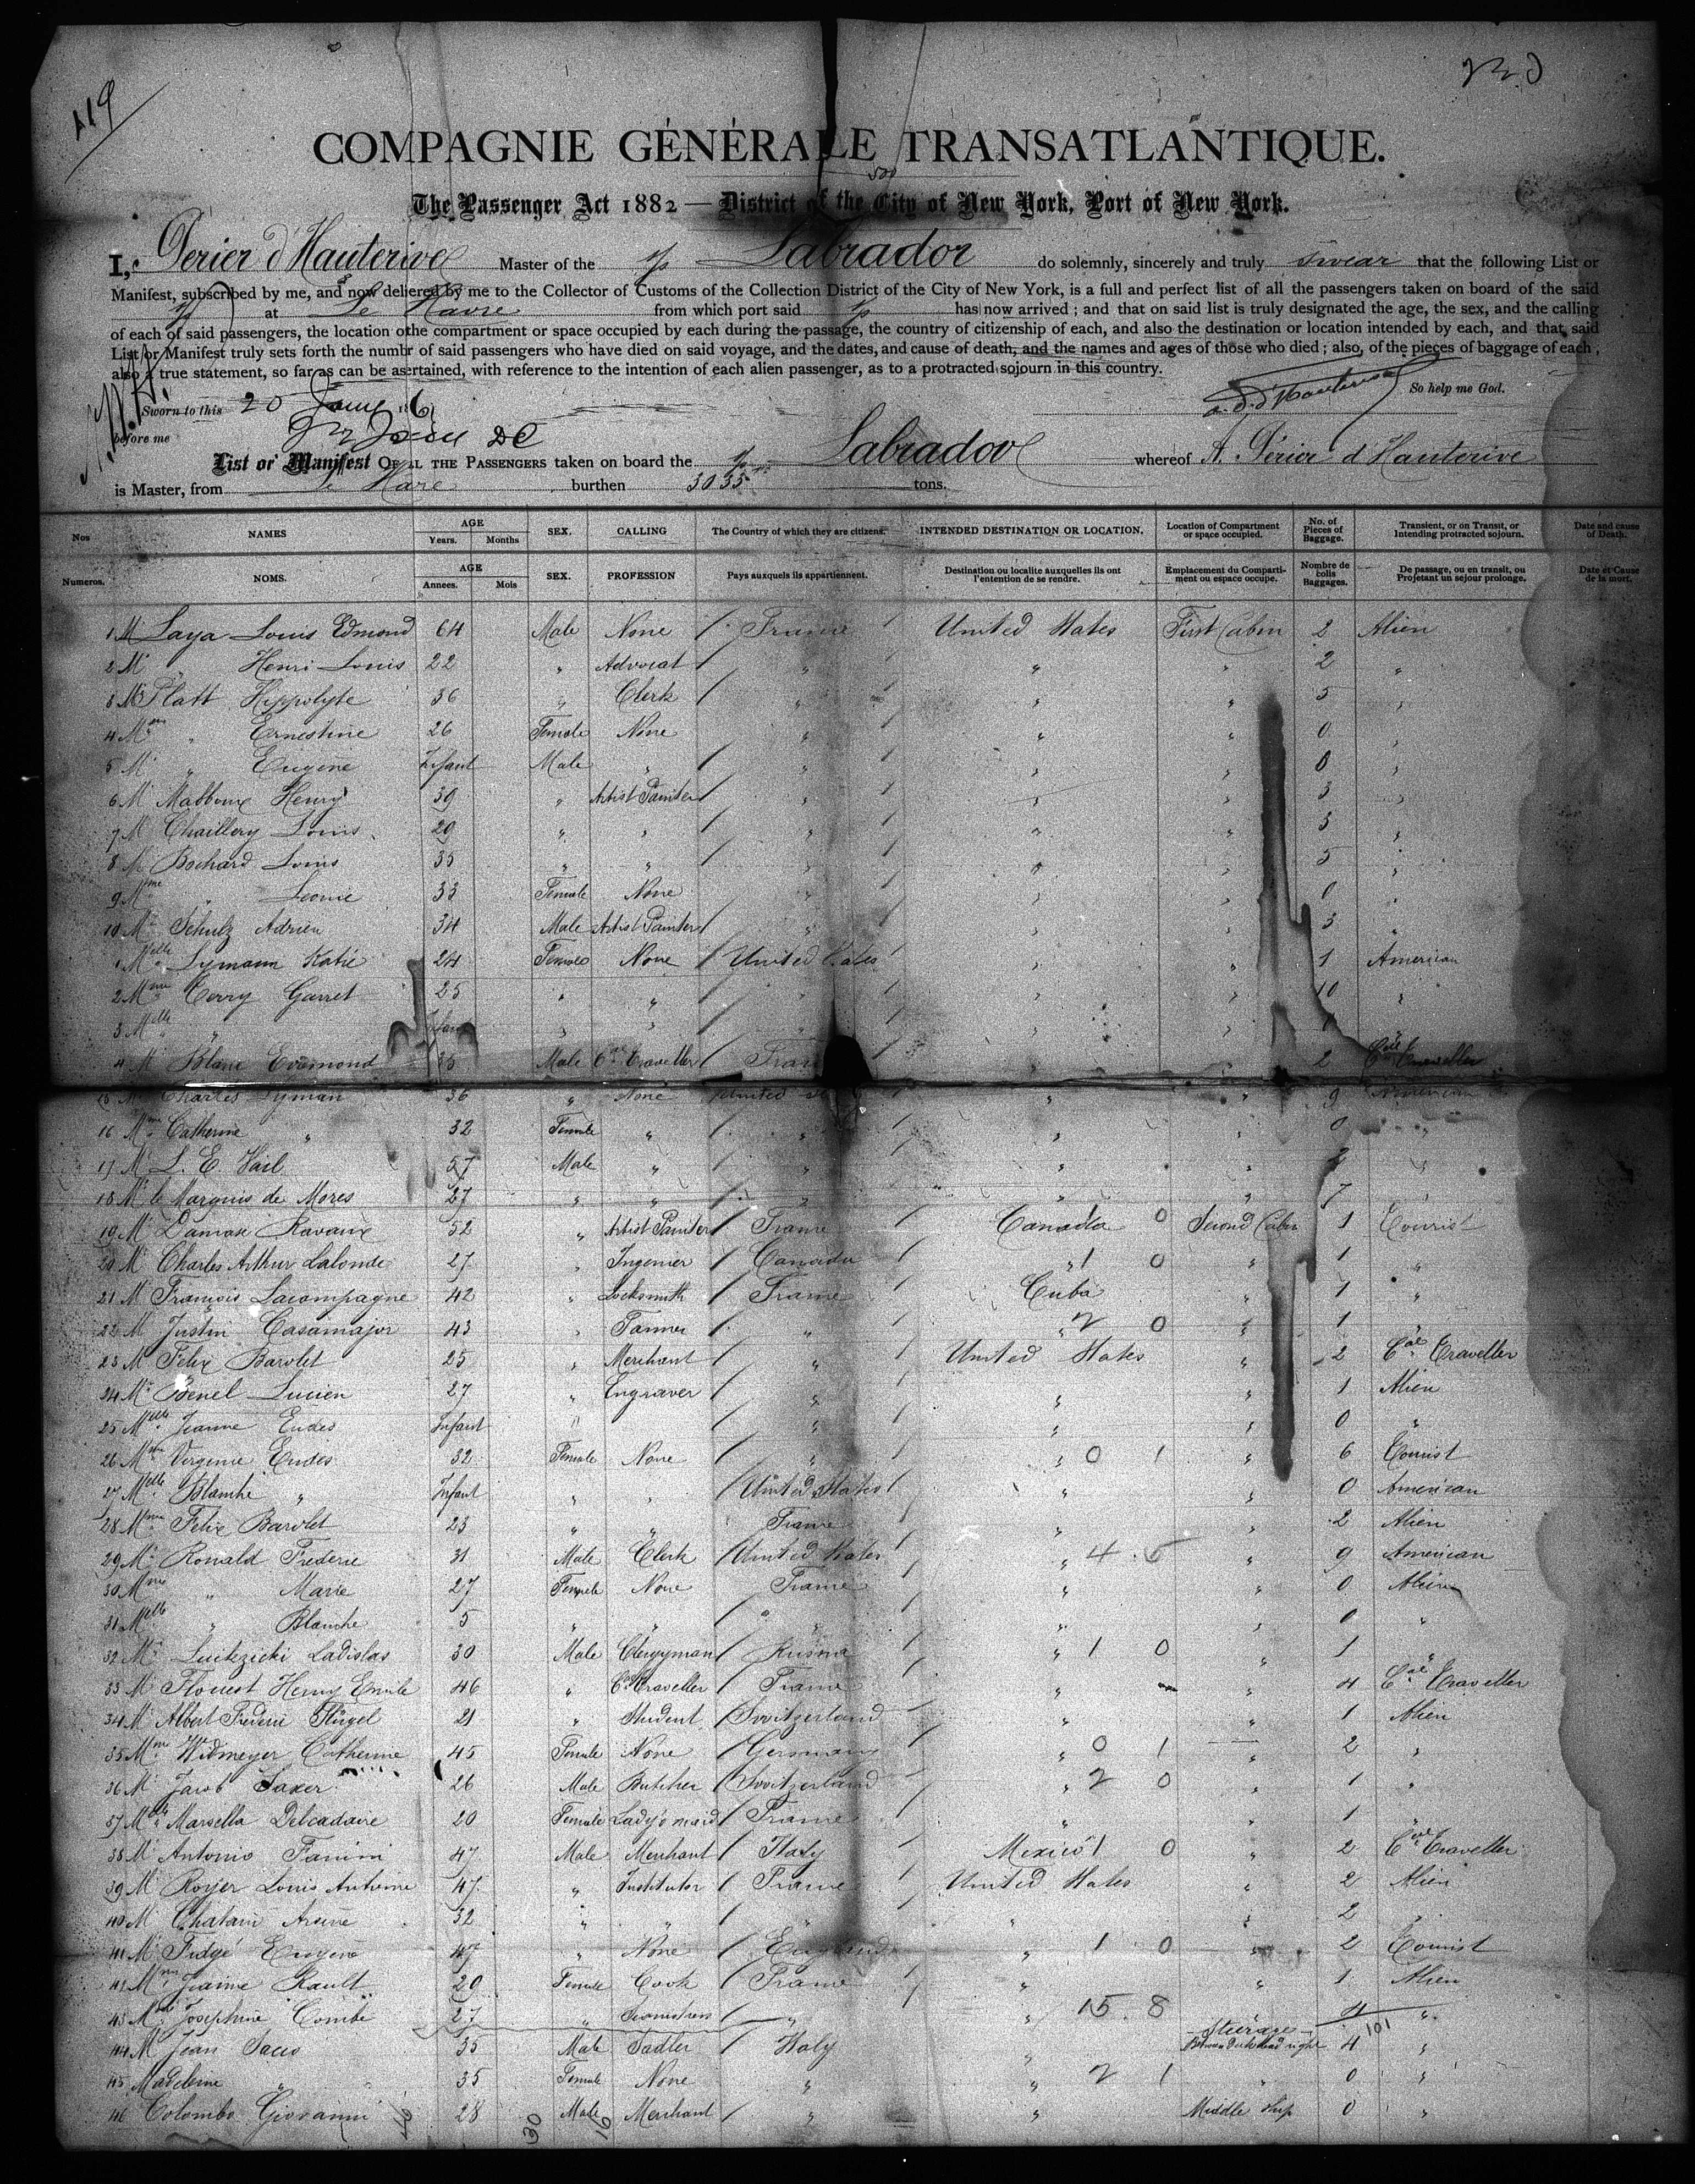 119
COMPAGNIE GÉNÉRALE TRANSATLANTIQUE.
The Passenger Act 1882 — District of the City of New York, Port of New York.
I, Perier d'Hauterive Master of the s/s Labrador do solemnly, sincerely and truly swear that the following List or
Manifest, subscribed by me, and now deliered by me to the Collector of Customs of the Collection District of the City of New York, is a full and perfect list of all the passengers taken on board of the said
at Le Havre from which port said s/s has now arrived ; and that on said list is truly designated the age, the sex, and the calling
of each of said passengers, the location othe compartment or space occupied by each during the passage, the country of citizenship of each, and also the destination or location intended by each, and that said
List or Manifest truly sets forth the numbr of said passengers who have died on said voyage, and the dates, and cause of death, and the names and ages of those who died ; also, of the pieces of baggage of each,
also a true statement, so far as can be asertained, with reference to the intention of each alien passenger, as to a protracted sojourn in this country.
So help me God.
Sworn to this 20
before me
List or Manifest OF AL THE PASSENGERS taken on board the s/s Labrador whereof A. Perier d'Hauterive
is Master, from Le Havre burthen 3035 tons.
Nos NAMES AGE Years. Months SEX. CALLING The Country of which they are citizens. INTENDED DESTINATION OR LOCATION. Location of Compartment or space occupied. No. of Pieces of Baggage. Transient, or on Transit, or Intending protracted sojourn. Date and cause of Death.
Numeros. NOMS. AGE Annees. Mois SEX. PROFESSION Pays auxquels ils appartiennent. Destination ou localite auxquelles ils ont l'entention de se rendre. Emplacement du Compartiment ou espace occupe. Nombre de colis Baggages. De passage, ou en transit, ou Projetant un sejour prolonge. Date et Cause de la mort.
1 Mr Laya Louis Edmond 64 Male None France United States First Cabin 2 Alien
2 Mr " Henri Louis 22 " Advocat " " " 2 "
3 Mr Platt Hippolyte 36 " Clerk " " " 5 "
4 Mme " Ernestine 26 Female None " " " 0 "
5 Mr " Eugene Infant Male " " " " 0 "
6 Mr Mabboux Henry 39 " Artist Painter " " " 3 "
7 Mr Chaillery Louis 29 " " " " " 3 "
8 Mr Bochard Louis 35 " " " " " 5 "
9 Mme " Leonie 33 Female None " " " 0 "
10 Mr Schulz Adrien 34 Male Artist Painter " " " 3 "
1 Melle Lymann Katie 24 Female None United States " " 1 American
2 Mme Terry Garret 25 " " " " " 10 "
3 Melle " Infant " " " " "
4 Mr Blanc Evremond 35 Male Cal Traveller France 2 Cal Traveller
15 Mr Charles Lyman 36 " None United " " 9 American
16 Mme Catherine " 32 Female " " " " 0 "
17 Mr L. E. Vail 57 Male " " " " 2 "
18 Mr le Marquis de Mores 27 " " " " " 7 "
19 Mr Damase Ravaux 52 " Artist Painter France Canada 0 Second Cabin 1 Tourist
20 Mr Charles Arthur Lalonde 27 " Ingenier Canada " 1 0 " 1 "
21 Mr Francois Lacompagne 42 " Locksmith France Cuba " 1 "
22 Mr Justin Casamajor 43 " Tanner " " 2 0 " 1 "
23 Mr Felix Barolet 25 " Merchant " United States " 2 Cal Traveller
24 Mr Benel Lucien 27 " Engraver " " " 1 Alien
25 Melle Jeanne Eudes Infant " " " " 0 "
26 Mme Virginie Eudes 32 Female None " " 0 1 " 6 Tourist
27 Melle Blanche " Infant " " United States " " 0 American
28 Mme Felix Barolet 23 " " France " " 2 Alien
29 Mr Ronald Frederic 31 Male Clerk United States " 4 5 " 9 American
30 Mme " Marie 27 Female None France " " 0 Alien
31 Melle " Blanche 5 " " " " " 0 "
32 Mr Ladislas 30 Male Clergyman Russia " 1 0 " 1 "
33 Mr Flouest Henry Emile 46 " Cal Traveller France " " 4 Cal Traveller
34 Mr Albert Frederic Flügel 21 " Student Switzerland " " 1 Alien
35 Mme Widmeyer Catherine 45 Female None Germany " 0 1 " 2 "
36 Mr Jacob Saxer 26 Male Butcher Switzerland " 2 0 " 1 "
37 Melle Marsella Delcadaire 20 Female Lady's maid France " " 1 "
38 Mr Antonio Fanini 47 Male Merchant Italy Mexico 1 0 " 2 Cal Traveller
39 Mr Royer Louis Antoine 47 " Institutor France United States " 2 Alien
40 Mr Chatain Arsene 32 " " " " " 2 "
41 Mr Fudgé Eugene 47 " None England " 1 0 " 2 Tourist
42 Jeanne Rault 20 Female Cook France " " 1 Alien
43 Josephine Combe 27 " " " 15 8 " 4 "
101
44 Mr Jean 35 Male Sadler Italy " Steerage 4 "
45 Madeleine " 35 Female None " " 2 1 " 0 "
46 Colombo Giovanni 28 Male Merchant " " Middle ship 0 "
46 30 16